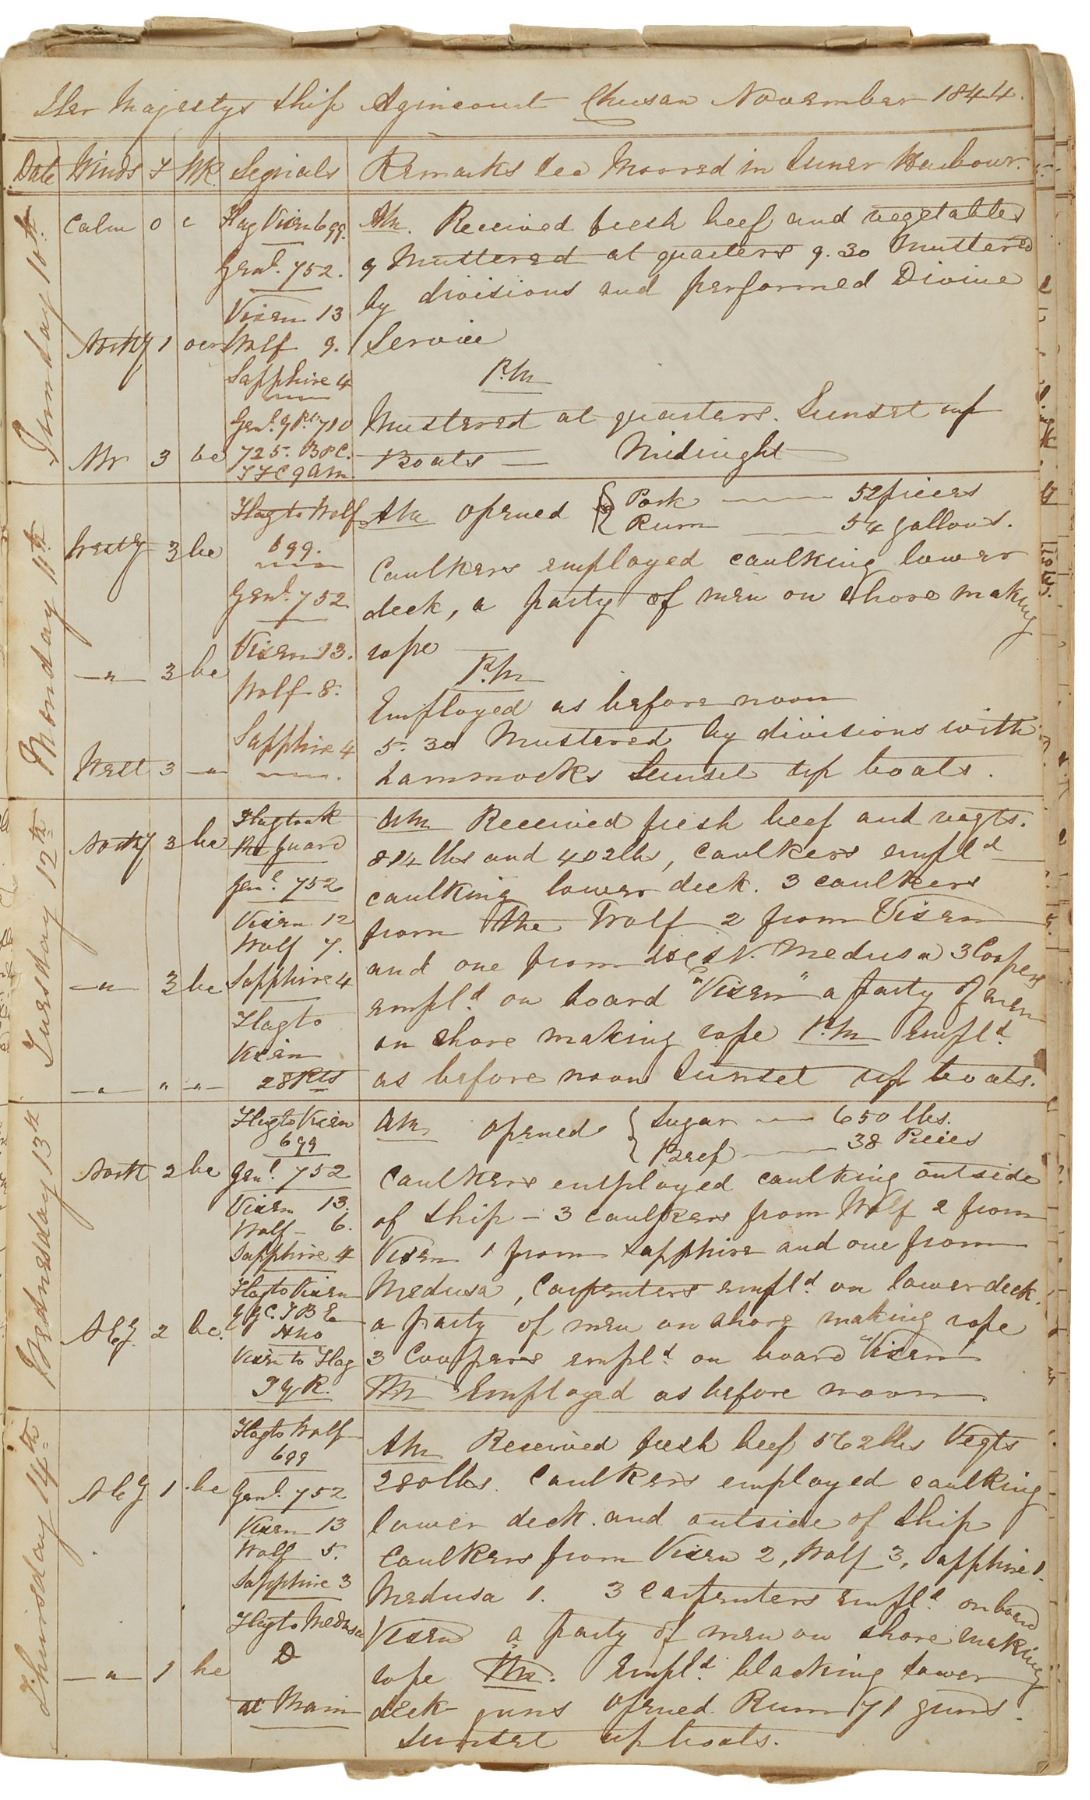 Her Majestys Ship Agincourt Chusan November 1844.
Date Winds F WR. Signals Remarks &ca Moored in Inner Harbour.
Sunday 10th
Calm 0 c Flag Vixen 699. Am. Received fresh beef and vegetables
Genl. 752. 9 Mustered at quarters 9.30 Mustered
Vixen 13 by divisions and performed Divine
Northy 1 Wolf 9. Service
Sapphire 4 P.M
710 Mustered at quarters. Sunset up
Nr 3 bc 725. B P C. Boats — Midnight
T F C 9 am.
Monday 11th
Flag to Wolf Am opened { Pork — 52 pieces
Westy 3 bc 699. Rum — 54 gallons.
Caulkers employed caulking lower
Genl. 752 deck, a party of men on shore making
Vixen 13. rope
—"— 3 bc Wolf 8. P.M
Employed as before noon
Sapphire 4 5.30 Mustered by divisions with
West 3 —"— hammocks Sunset up boats.
Tuesday 12th
Am Received fresh beef and vegts.
Northy 3 bc Row Guard 814 lbs and 402 lbs, Caulkers empld
Genl. 752 caulking lower deck. 3 caulkers
Vixen 12 from the Wolf 2 from Vixen
Wolf 7. and one from Medusa 3 Coopers
—"— 3 bc Sapphire 4 empld on board "Vixen" a party of men
Flag to on shore making rope P.M Empld
Vixen
—"— " —"— 28 as before noon Sunset up boats.
Wednesday 13th
Flag to Vixen Am opened { Sugar — 650 lbs.
699 Beef — 38 Pieces
North 2 bc Genl. 752 Caulkers employed caulking outside
Vixen 13. of Ship – 3 caulkers from Wolf 2 from
Wolf – 6.
Sapphire 4 Vixen 1 from Sapphire and one from
Flag to Vixen Medusa, Carpenters empld on lower deck.
2 bc. a party of men on shore making rope
Vixen to Flag 3 Coopers empld on board "Vixen"
P.M Employed as before noon.
Thursday 14th
Flag to Wolf Am Received fresh beef 562 lbs Vegts
699
1 bc Genl. 752 280 lbs. Caulkers employed caulking
Vixen 13 lower deck. and outside of Ship
Wolf 5. Caulkers from Vixen 2, Wolf 3, Sapphire 1.
Sapphire 3 Medusa 1. 3 Carpenters empld on board
Flag to Medusa Vixen a party of men on shore making
—"— 1 bc D rope P.M. Empld blacking lower
at Main deck guns opened Rum 71
Sunset up boats.